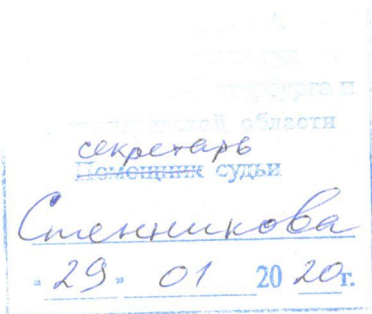 тербурга и
области
секретарь
Помощник судьи
Стенникова
"29" 01 2020г.